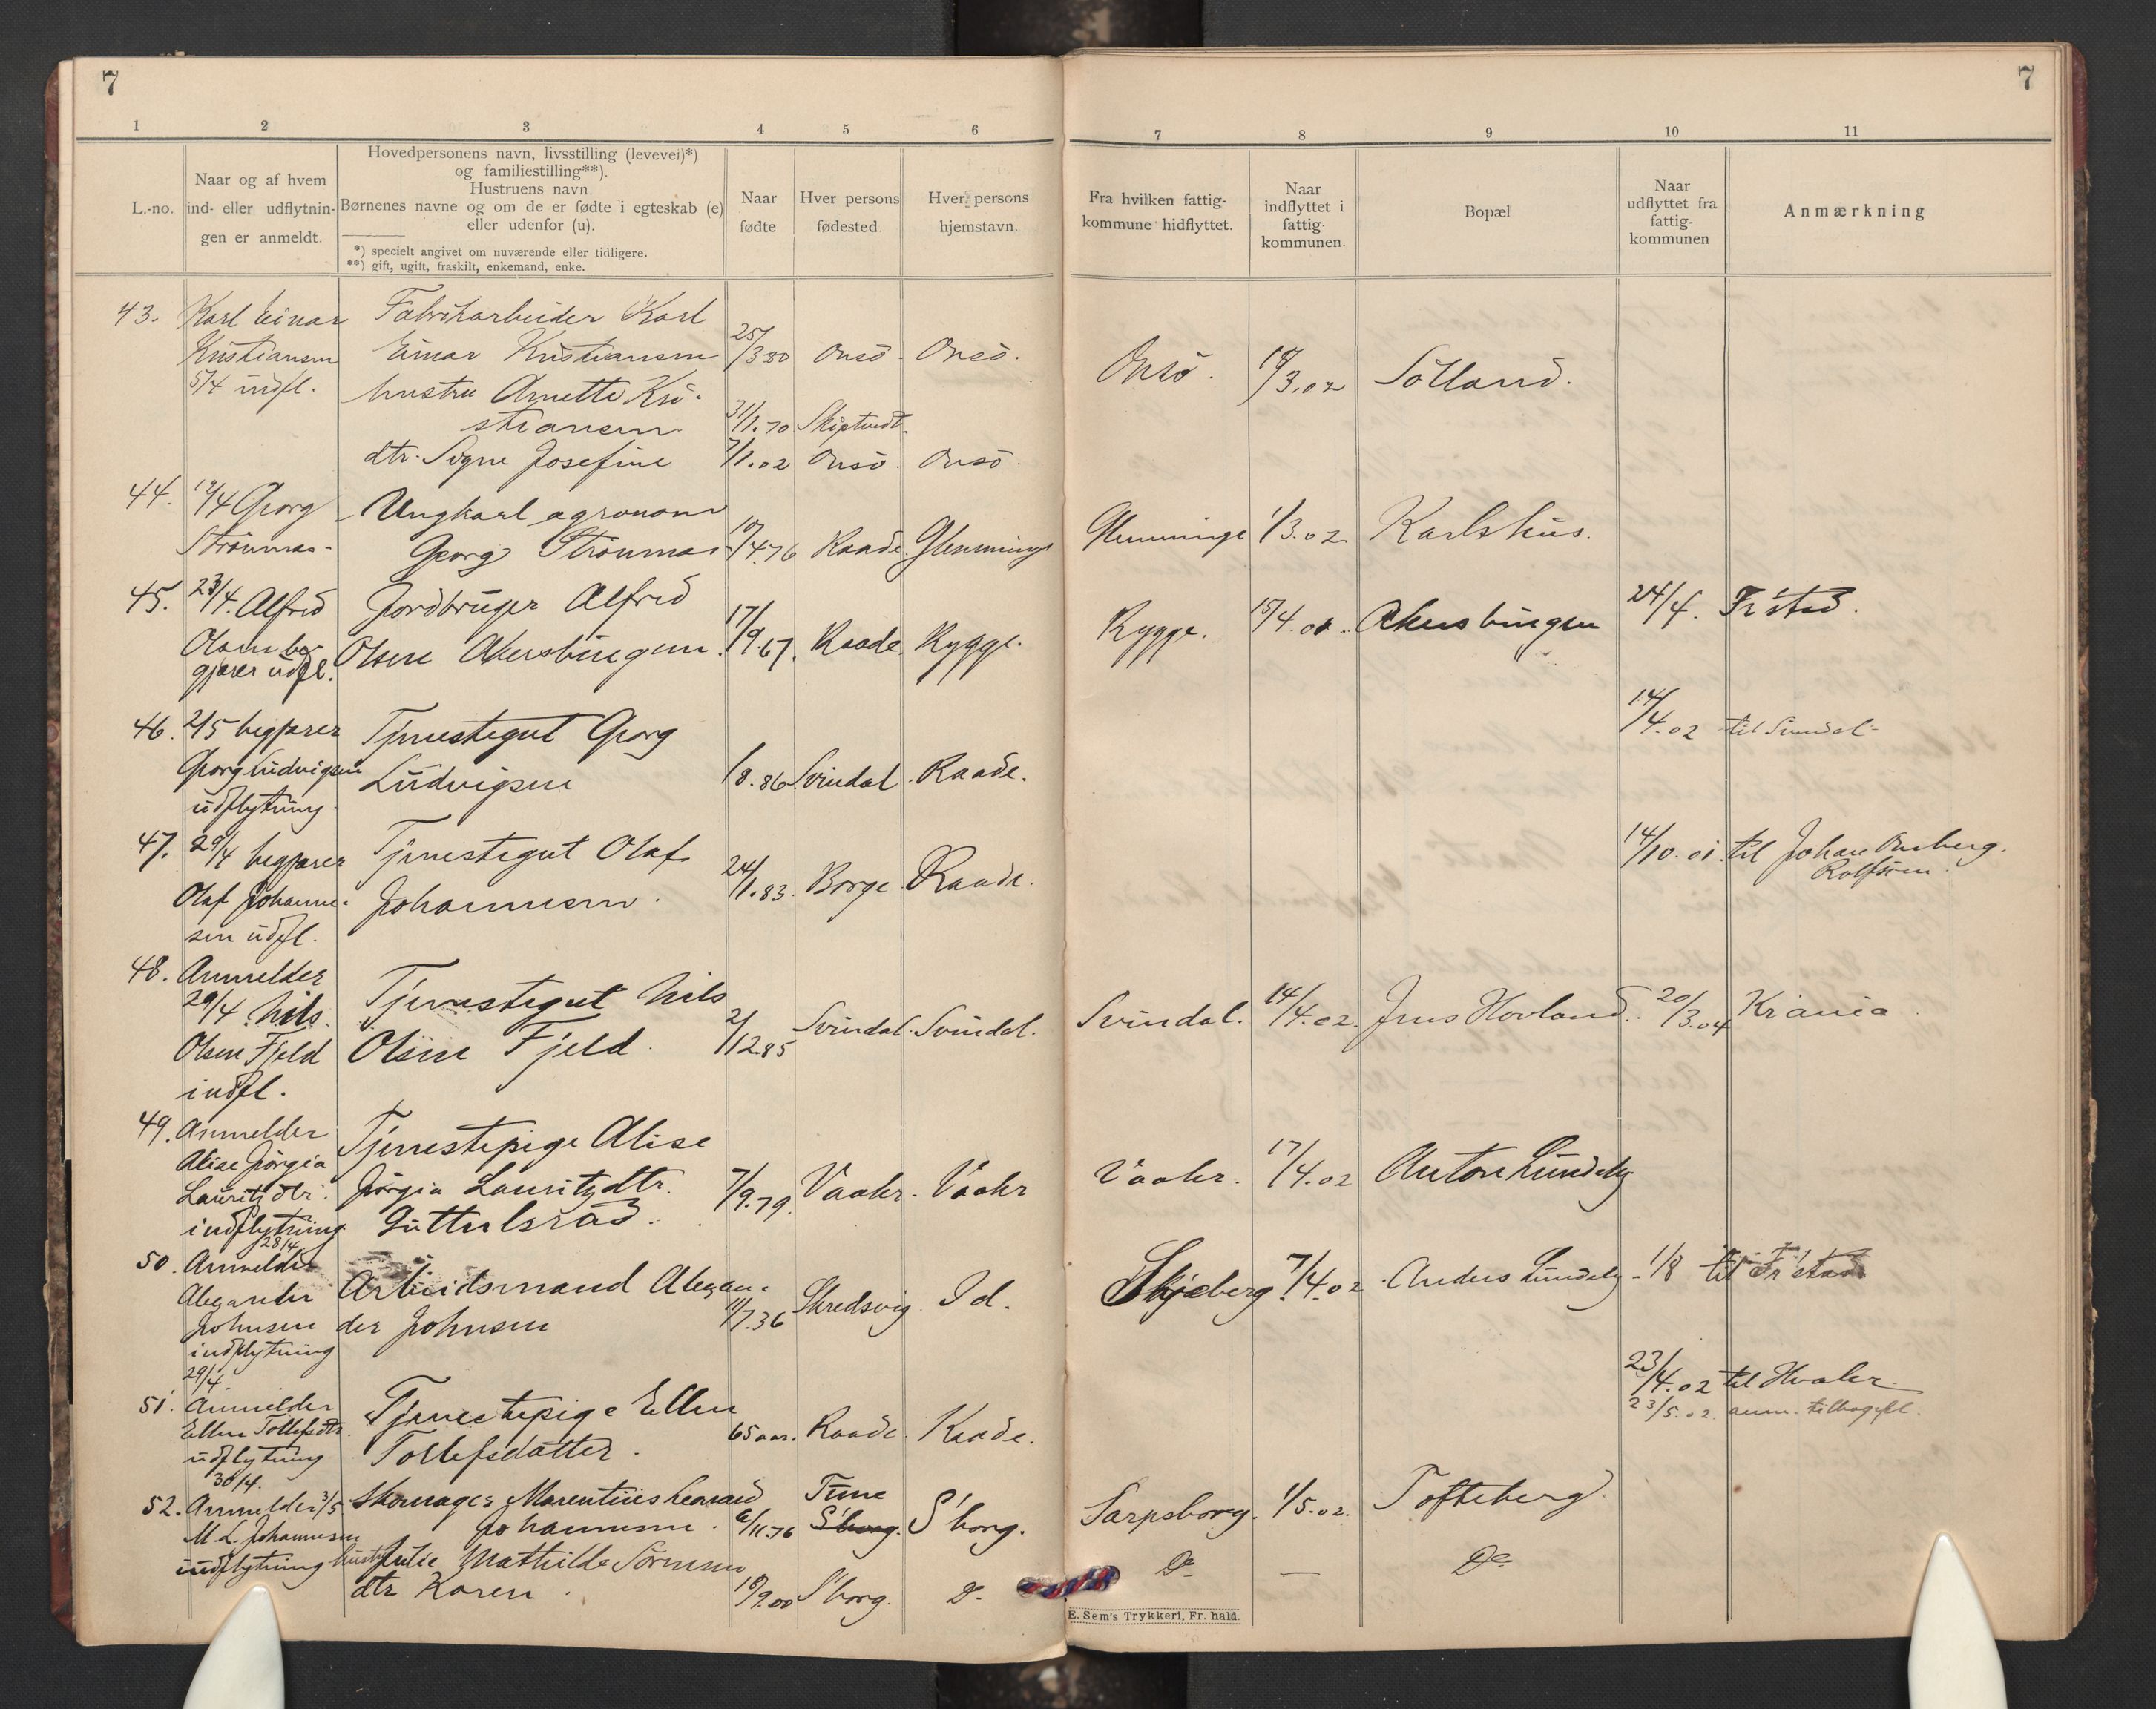 7
7
1 2 3 4 5 6 7 8 9 10 11
L.-no.
Naar og af hvem
ind- eller udflytnin-
gen er anmeldt.
Hovedpersonens navn, livsstilling (levevei)*)
og familiestilling**).
Hustruens navn
Børnenes navne og om de er fødte i egteskab (e)
eller udenfor (u).
*) specielt angivet om nuværende eller tidligere.
**) gift, ugift, fraskilt, enkemand, enke.
Naar
fødte
Hver persons
fødested.
Hver persons
hjemstavn.
Fra hvilken fattig-
kommune hidflyttet.
Naar
indflyttet i
fattig-
kommunen.
Bopæl
Naar
udflyttet fra
fattig-
kommunen
Anmærkning
43. Karl Einar
Kristiansen
5/4 indfl.
Fabrikarbeider Karl
Einar Kristiansen 25/3 80 Onsö. Onsö.
hustru Anette Kri-
stiansen 31/1.70 Skiptvedt.
dtr. Signe Josefine 7/1.02 Onsö. Onsö.
Onsö. 18/3.02 Solland.
44. 12/4 Georg
Strömnæs.
Ungkarl agronom
Georg Strömnæs 10/4.76 Raade. Glemminge
Glemminge 1/3.02 Karlshus.
45. 23/4. Alfred
Olsen be-
gjærer udfl.
Jordbruger Alfred
Olsen Akersbingen. 17/9.67. Raade. Rygge.
Rygge. 15/4.01. Akersbingen 24/4. Fr'stad.
46. 2/5 begjærer
Georg Ludvigsen
udflytning
Tjenestegut Georg
Ludvigsen /8.86 Svindal. Raade.
14/4.02 til Svindal-
47. 29/4 begjærer
Olaf Johanne-
sen udfl.
Tjenestegut Olaf
Johannesen. 24/1.83. Borge Raade.
14/10.01. til Johan Onsberg.
Rolfsöen.
48. Anmelder
29/4 Nils
Olsen Fjeld
indfl.
Tjenestegut Nils
Olsen Fjeld. 2/12 85 Svindal. Svindal.
Svindal. 14/4.02. Jens Hovland. 20/3.04 Kr'ania
49. Anmelder
Alise Jörgia
Lauritzdtr.
indflytning
28/4
Tjenestepige Alise
Jörgia Lauritzdtr.
Guttulsröd. 7/9.79. Vaaler. Vaaler
Vaaler. 17/4.02 Anton Lundeby
50. Anmelder
Alexander
Johnsen
indflytning
29/4
Arbeidsmand Alexan-
der Johnsen 11/7.36 Skredsvig Id.
Skjeberg. 7/4.02. Anders Lundeby - 1/8 til Fr'stad
51. Anmelder
Ellen Tollefsdtr.
udflytning
30/4.
Tjenestepige Ellen
Tollefsdatter. 65 aar. Raade. Raade.
23/4.02 til Hvaler
23/5.02. anm. tilbagefl.
52. Anmelder 3/5
M. L. Johannesen
indflytning
Skomager Marentius Leonard
Johannesen. 6/11.76 Tune
S'borg. S'borg.
hustr Julie Mathilde Sörensen
dtr Karen. 18/9.00 S'borg. Do.
Sarpsborg. 1/5.02. Tofteberg.
Do. — Do.
E. Sem's Trykkeri, Fr.hald.